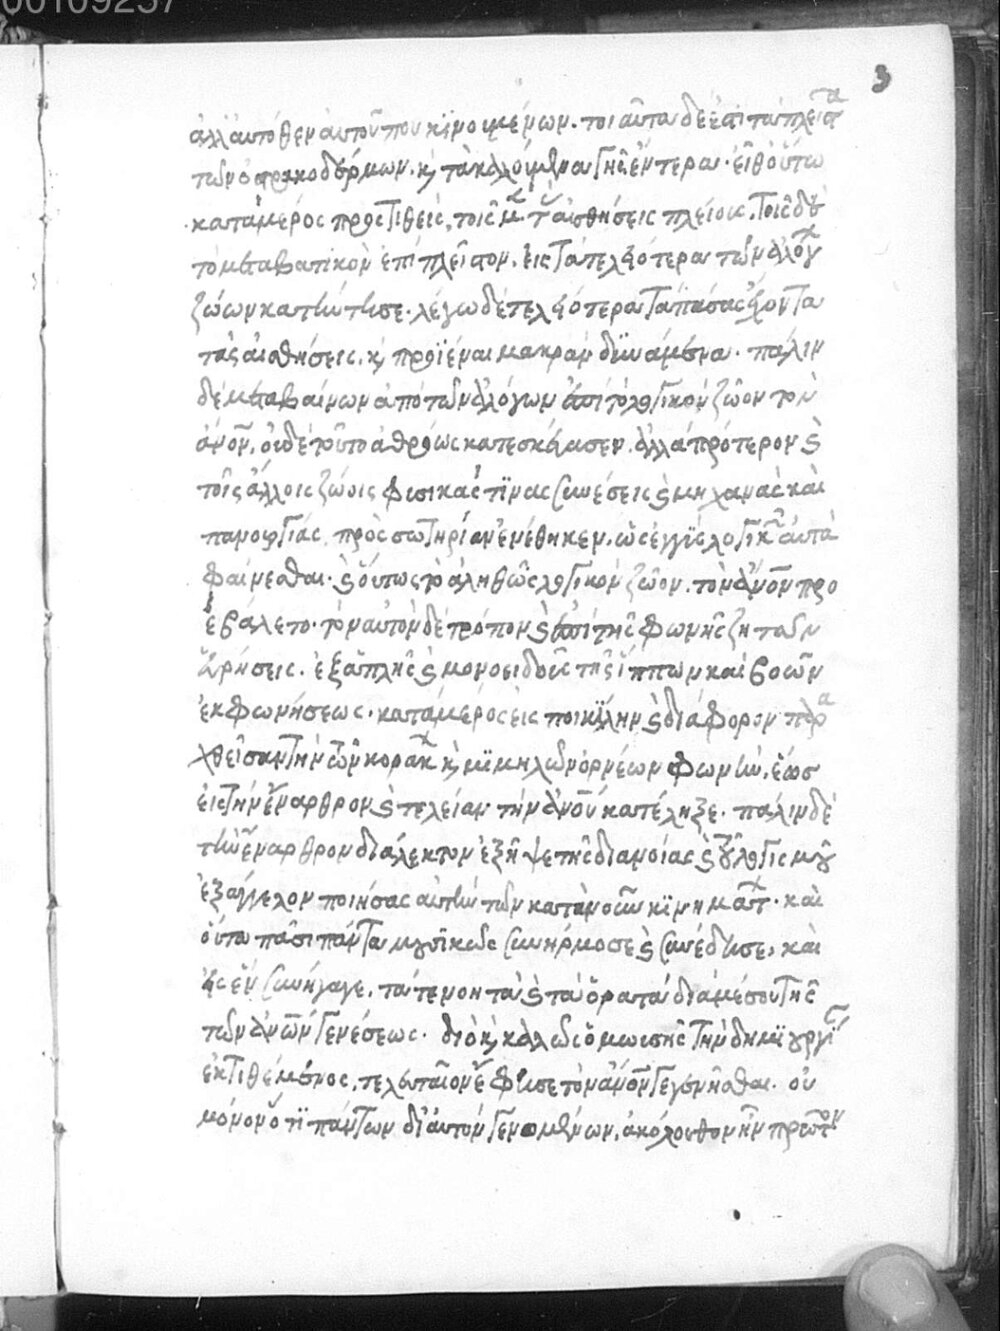 00109257
3
ἀλλ' αὐτόθεν αὐτοῦ που κινουμένων. τοιαῦτα δέ ἐστι τὰ πλεῖστα
τῶν ὀστρακοδέρμων. κ, τὰ καλούμενα γῆς ἔντερα. εἶθ' οὕτω
κατὰ μέρος προστιθεὶς, τοῖς μ τ αἰσθήσεις πλείους. τοῖς δὲ
τὸ μεταβατικὸν ἐπὶ πλεῖστον. εἰς τὰ τελειότερα τῶν ἀλόγ
ζώων κατήντησε. λέγω δὲ τελειότερα τὰ πάσας ἔχοντα
τὰς αἰσθήσεις. κ, προϊέναι μακρὰν δυνάμενα. πάλιν
δὲ μεταβαίνων ἀπὸ τῶν ἀλόγων ἐπὶ τὸ λογικὸν ζῶον τὸν
ἄνον, οὐδὲ τοῦτο ἀθρόως κατεσκεύασεν. ἀλλὰ πρότερον ϛ
τοῖς ἄλλοις ζώοις φυσικάς τινας συνέσεις ϛ μηχανὰς καὶ
πανουργίας πρὸς σωτηρίαν ἐνέθηκεν. ὡς ἐγγὺς λογικ αὐτὰ
φαίνεσθαι. ϛ οὕτως τὸ ἀληθῶς λογικὸν ζῶον. τὸν ἄνον προ
εβάλετο. τὸν αὐτὸν δὲ τρόπον ϛ ἐπὶ τῆς φωνῆς ζητῶν
εὑρήσεις. ἐξ ἁπλῆς ϛ μονοειδοῦς τῆς ἵππων καὶ βοῶν
ἐκφωνήσεως. κατὰ μέρος εἰς ποικίλην ϛ διάφορον παρα
χθεῖσαν τὴν τῶν κοράκ κ, μιμηλῶν ὀρνέων φωνὴν, ἕως
εἰς τὴν ἔναρθρον ϛ τελείαν τὴν ἀνου κατέληξε. πάλιν δὲ
τὴν ἔναρθρον διάλεκτον ἐξῆψε τῆς διανοίας ϛ τ λογισμ
ἐξάγγελον ποιήσας αὐτὴν τῶν κατὰ νοῦν κινημάτ. καὶ
οὕτω πᾶσι πάντα μουσικῶς συνήρμοσε ϛ συνέδησε, καὶ
εἰς ἓν συνήγαγε. τά τε νοητὰ ϛ τὰ ὁρατὰ διὰ μέσου τῆς
τῶν ἀνων γενέσεως. διὸ κ, καλῶς ὁ μωυσῆς τὴν δημιουργί
ἐκτιθέμενος, τελευταῖον ἔφησε τὸν ἄνον γεγενῆσθαι. οὐ
μόνον ὅτι πάντων δι' αὐτὸν γενομένων, ἀκόλουθον ἦν πρῶτον